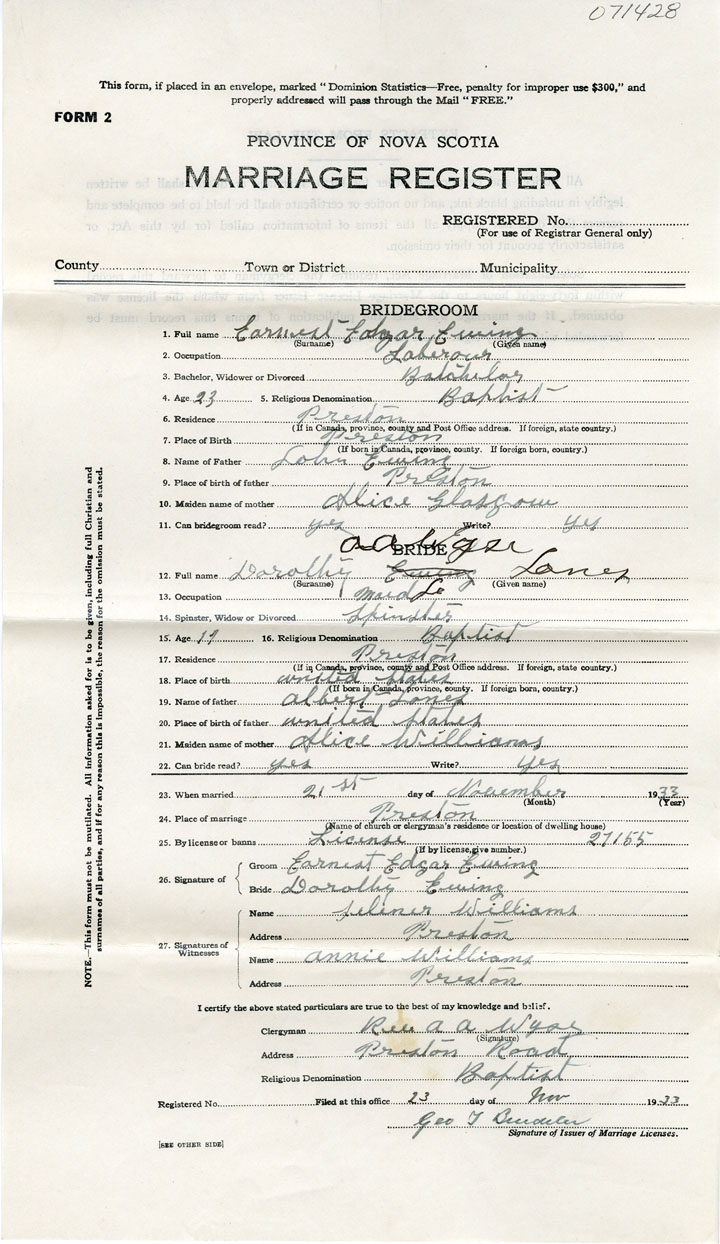 071428
This form, if placed in an envelope, marked "Dominion Statistics—Free, penalty for improper use $300," and
properly addressed will pass through the Mail "FREE."
FORM 2
PROVINCE OF NOVA SCOTIA
MARRIAGE REGISTER
REGISTERED No.
(For use of Registrar General only)
County Town or District Municipality
BRIDEGROOM
1. Full name Earnest Edgar Ewing
(Surname) (Given name)
2. Occupation Laberour
3. Bachelor, Widower or Divorced Batchelor
4. Age 23 5. Religious Denomination Baptist
6. Residence Preston
(If in Canada, province, county and Post Office address. If foreign, state country.)
7. Place of Birth Preston
(If born in Canada, province, county. If foreign born, country.)
8. Name of Father John Ewing
9. Place of birth of father Preston
10. Maiden name of mother Alice Glasgow
11. Can bridegroom read? yes Write? yes
A A Wyse
BRIDE
12. Full name Dorothy Ewing Jones
(Surname) (Given name)
13. Occupation Maid
14. Spinster, Widow or Divorced Spinster
15. Age 19 16. Religious Denomination Baptist
17. Residence Preston
(If in Canada, province, county and Post Office address. If foreign, state country.)
18. Place of birth united states
(If born in Canada, province, county. If foreign born, country.)
19. Name of father Albert Jones
20. Place of birth of father united states
21. Maiden name of mother Alice Williams
22. Can bride read? yes Write? yes
23. When married 21st day of November 1933
(Month) (Year)
24. Place of marriage Preston
(Name of church or clergyman's residence or location of dwelling house)
25. By license or banns License 27155
(If by license, give number.)
26. Signature of Groom Earnest Edgar Ewing
Bride Dorothy Ewing
27. Signatures of Witnesses
Name Williams
Address Preston
Name annie Williams
Address Preston
I certify the above stated particulars are true to the best of my knowledge and belief.
Clergyman Rev A A Wyse
(Signature)
Address Preston Road
Religious Denomination Baptist
Registered No. Filed at this office 23 day of Nov 1933
Geo T
Signature of Issuer of Marriage Licenses.
[SEE OTHER SIDE]
NOTE.—This form must not be mutilated. All information asked for is to be given, including full Christian and
surnames of all parties, and if for any reason this is impossible, the reason for the omission must be stated.